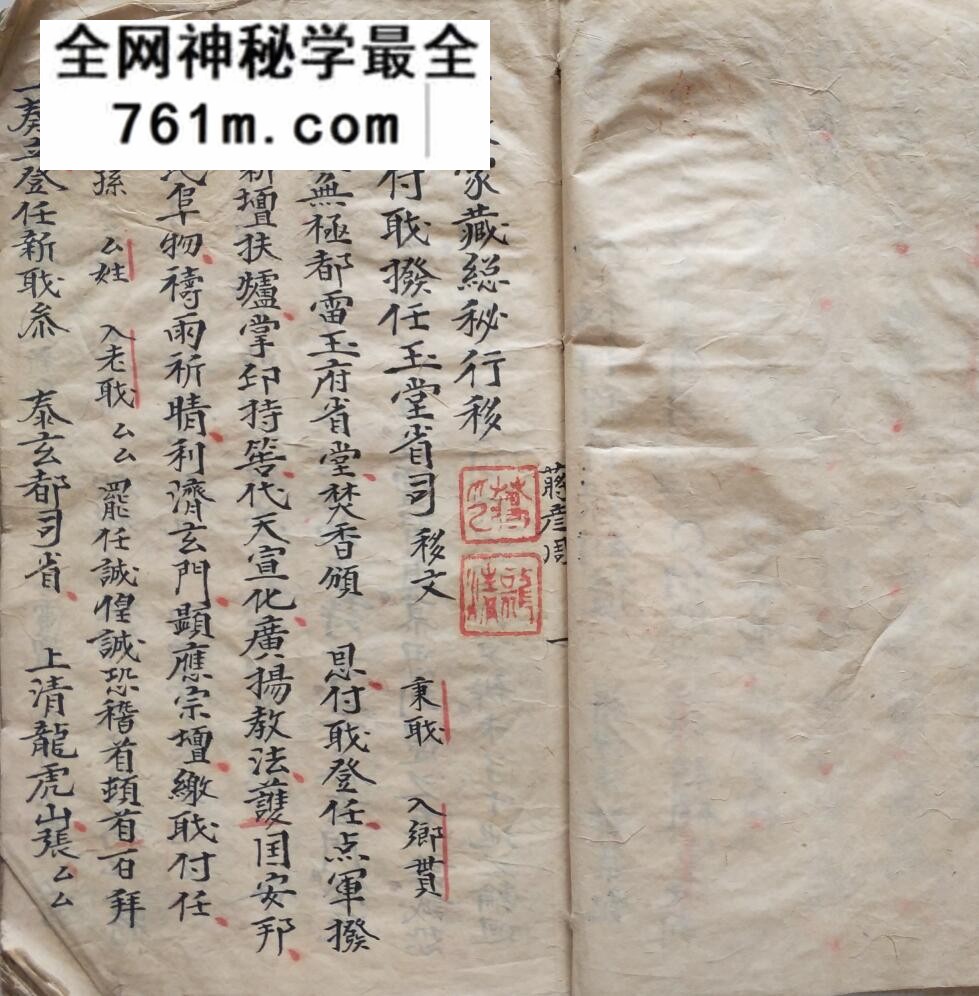 全网神秘学最全
761m.com
家藏総秘行移
蔣彦周
一
付耺撥任玉堂省司 移文 秉耺 入鄉貫
無極都雷玉府省堂焚香頒 恩付耺登任点軍撥
新壇扶爐掌印持筶代天宣化廣揚教法護囯安邦
民阜物禱雨祈晴利濟玄門顕應宗壇繳耺付任
孫 厶姓 入老耺厶厶 罷任誠惶誠恐稽首頓首百拜
一奏立登任新耺叅 泰玄都司省 上清龍虎山張厶厶